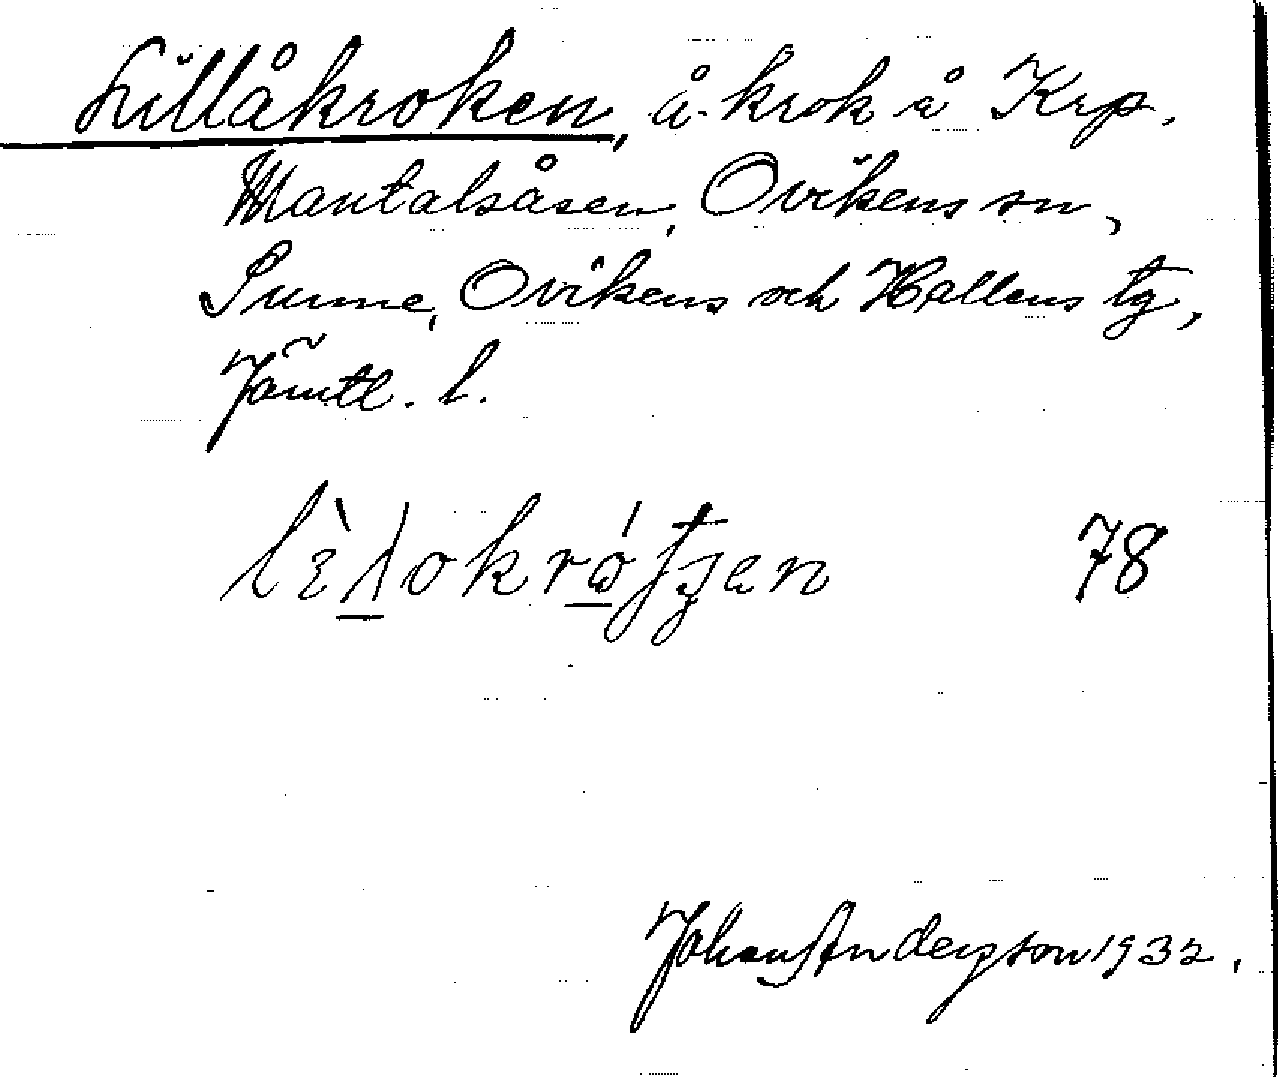 Lillåkroken, å-krok å Krp.
Mantalsåsen, Ovikens sn,
Sunne, Ovikens och Hallens tg,
Jämtl. l.
78
Johan Anderson 1932.